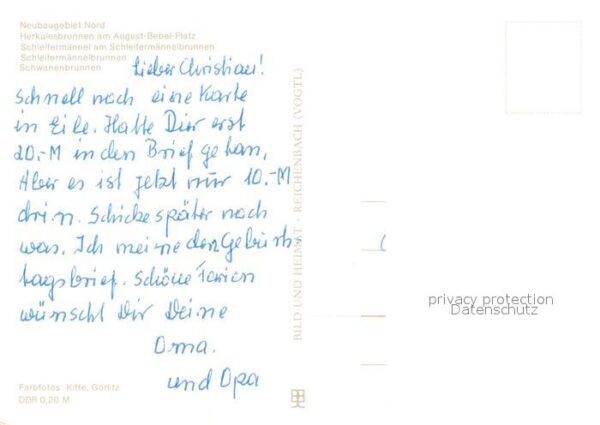 Neubaugebiet Nord
Herkulesbrunnen am August-Bebel-Platz
Schleifermännel am Schleifermännelbrunnen
Schleifermännelbrunnen
Schwanenbrunnen
Lieber Christian!
Schnell noch eine Karte
in Eile. Hatte Dir erst
20.-M in den Brief getan,
Aber es ist jetzt nur 10.-M
drin. Schicke später noch
was. Ich meine den Geburts
tagsbrief. Schöne Ferien
wünscht Dir Deine
Oma.
und Opa
Farbfotos Kitte, Görlitz
DDR 0,20 M
BILD UND HEIMAT · REICHENBACH (VOGTL)
privacy protection
Datenschutz